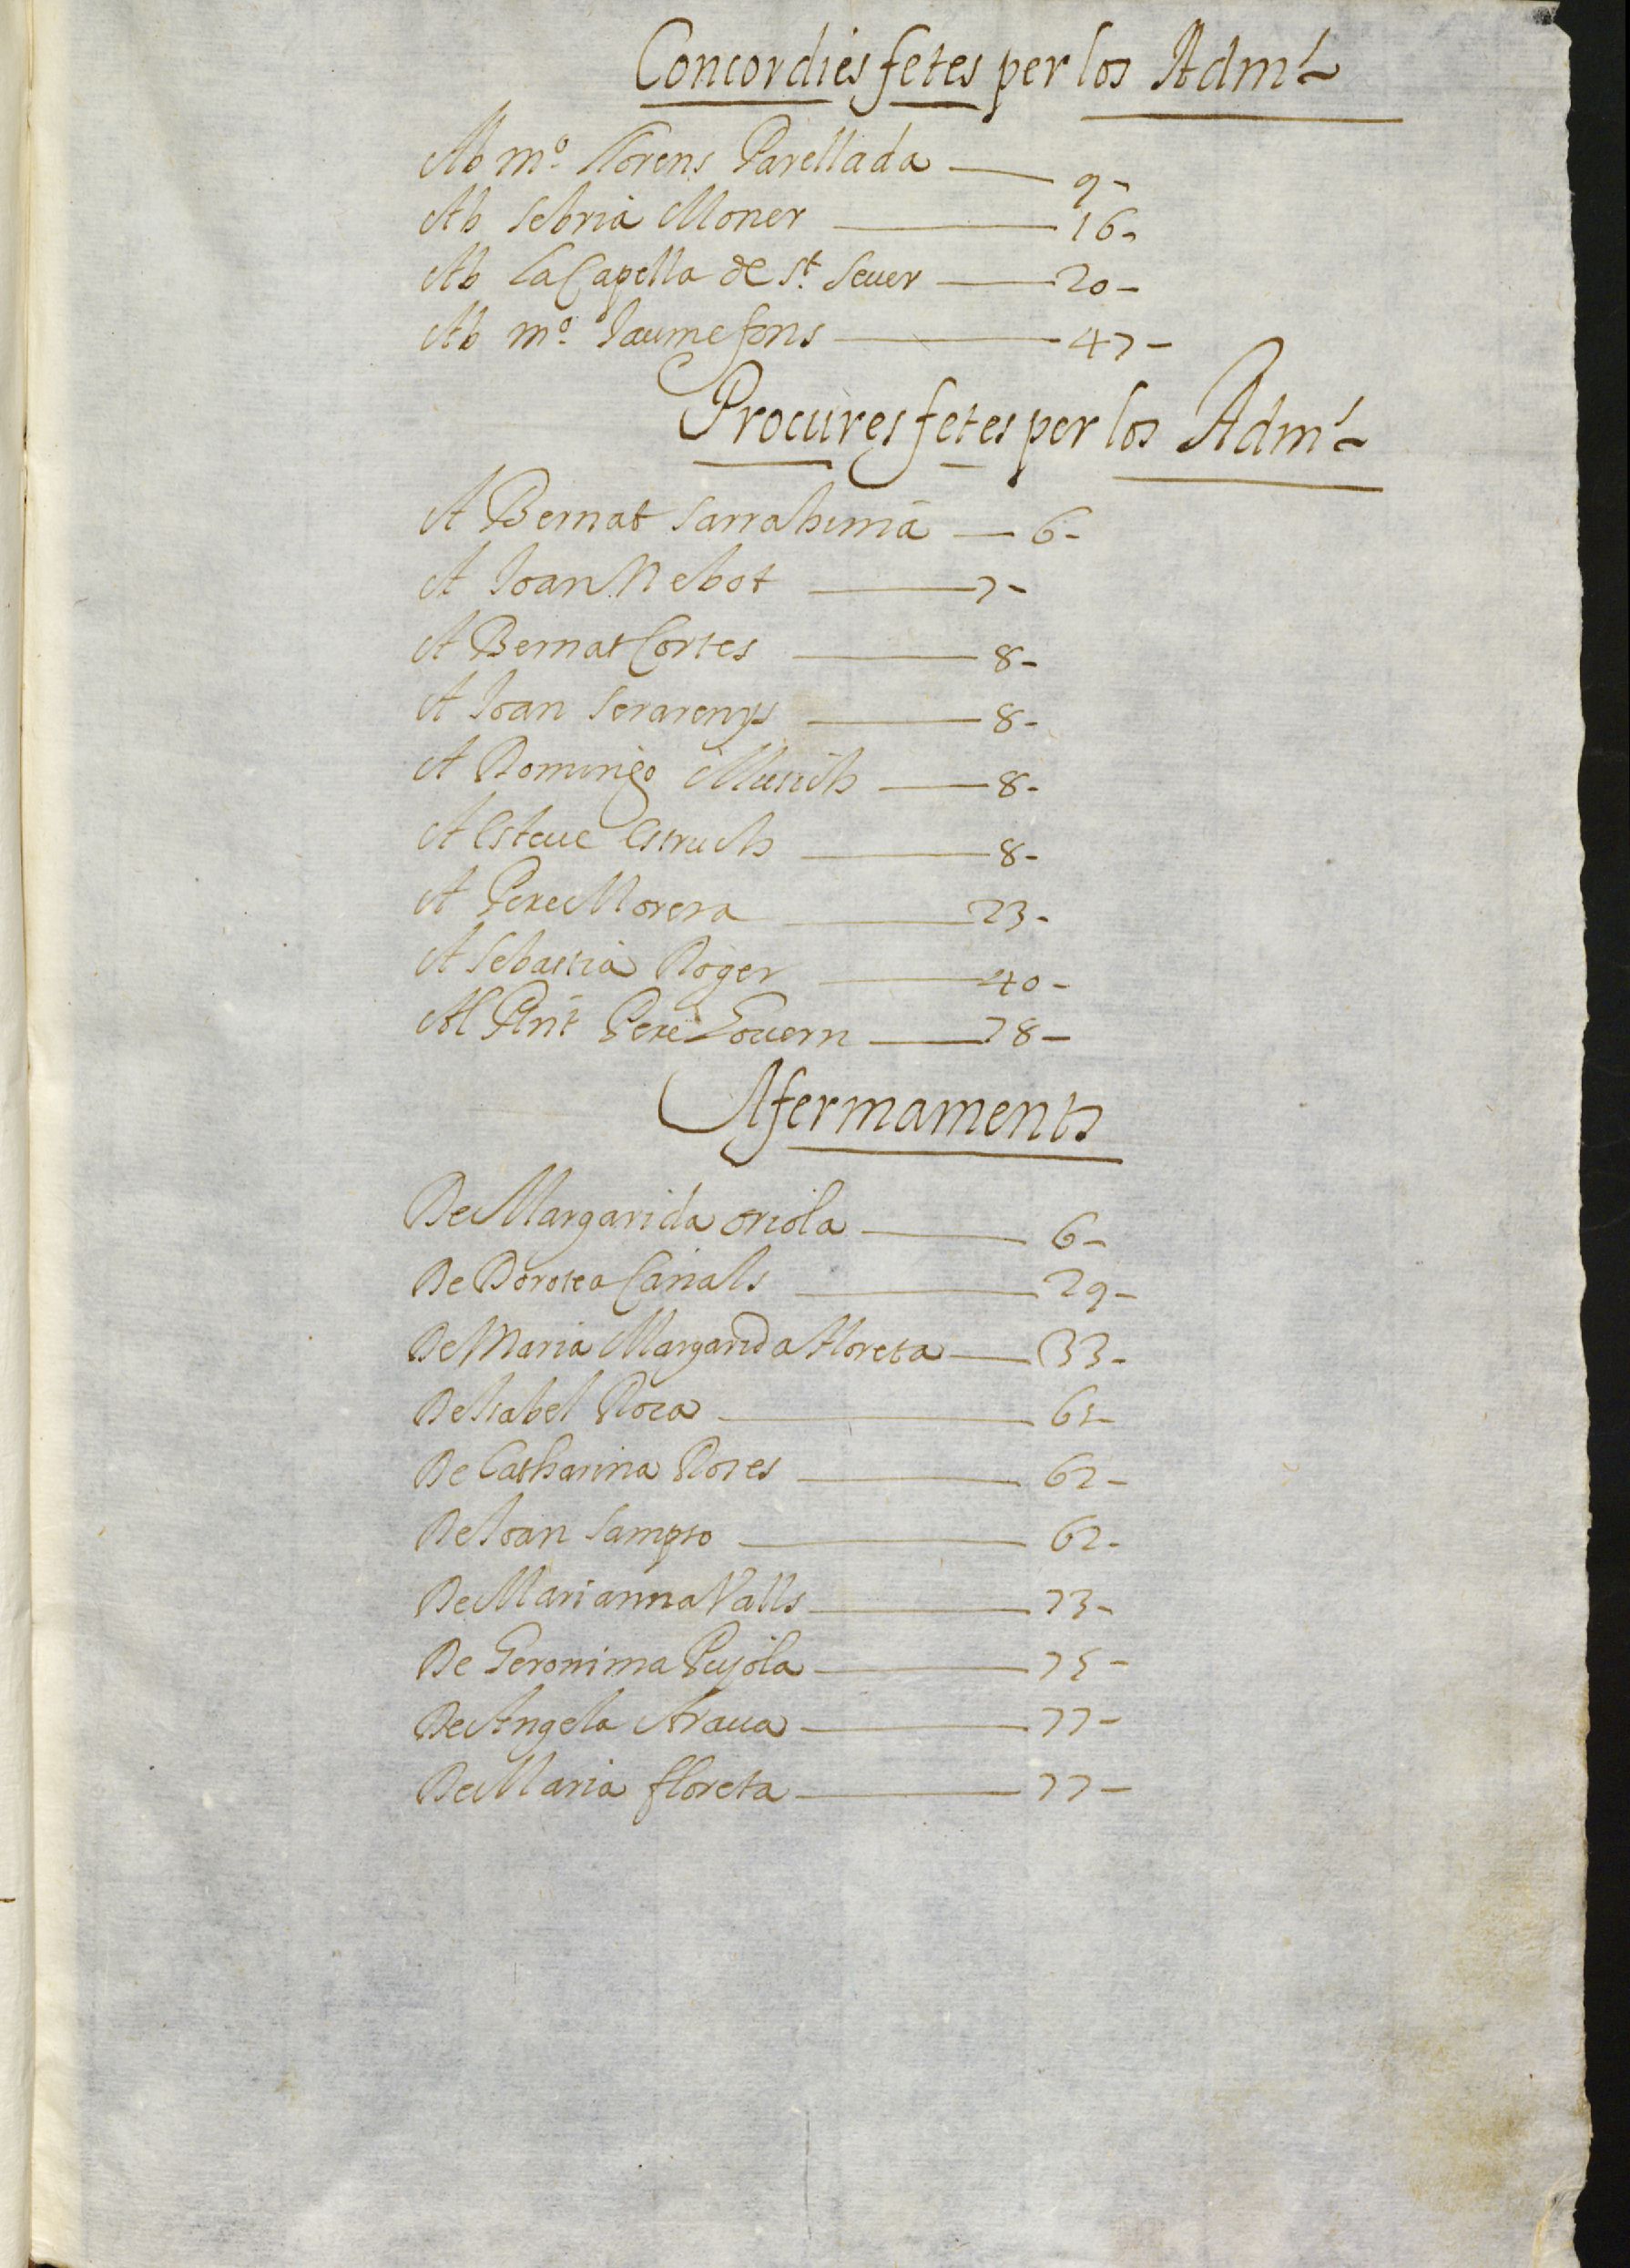 Concordies fetes per los Adm.
Ab mº. Llorens Parellada — 9-
Ab Sebria Moner — 16-
Ab La Capella de St. Seuer — 20-
Ab mº. Jaume fons — 47-
Procures fetes per los Adm.
A Bernat Sarrahima — 6-
A Joan Nebot — 7-
A Bernat Cortes — 8-
A Joan Serarenys — 8-
A Domingo — 8-
A Esteue Estruch — 8-
A Pere Morera — 23-
A Sebastia Roger — 40-
Al Pere Gouern — 78-
Afermaments
De Margarida oriola — 6-
De Dorotea Canals — 29-
De Maria Margarida floreta — 33-
De Isabel Roca — 61-
De Catharina Roses — 62-
De Joan Sampso — 62-
De Marianna Valls — 73-
De Geronima Pujola — 75-
De Angela Araua — 77-
De Maria floreta — 77-